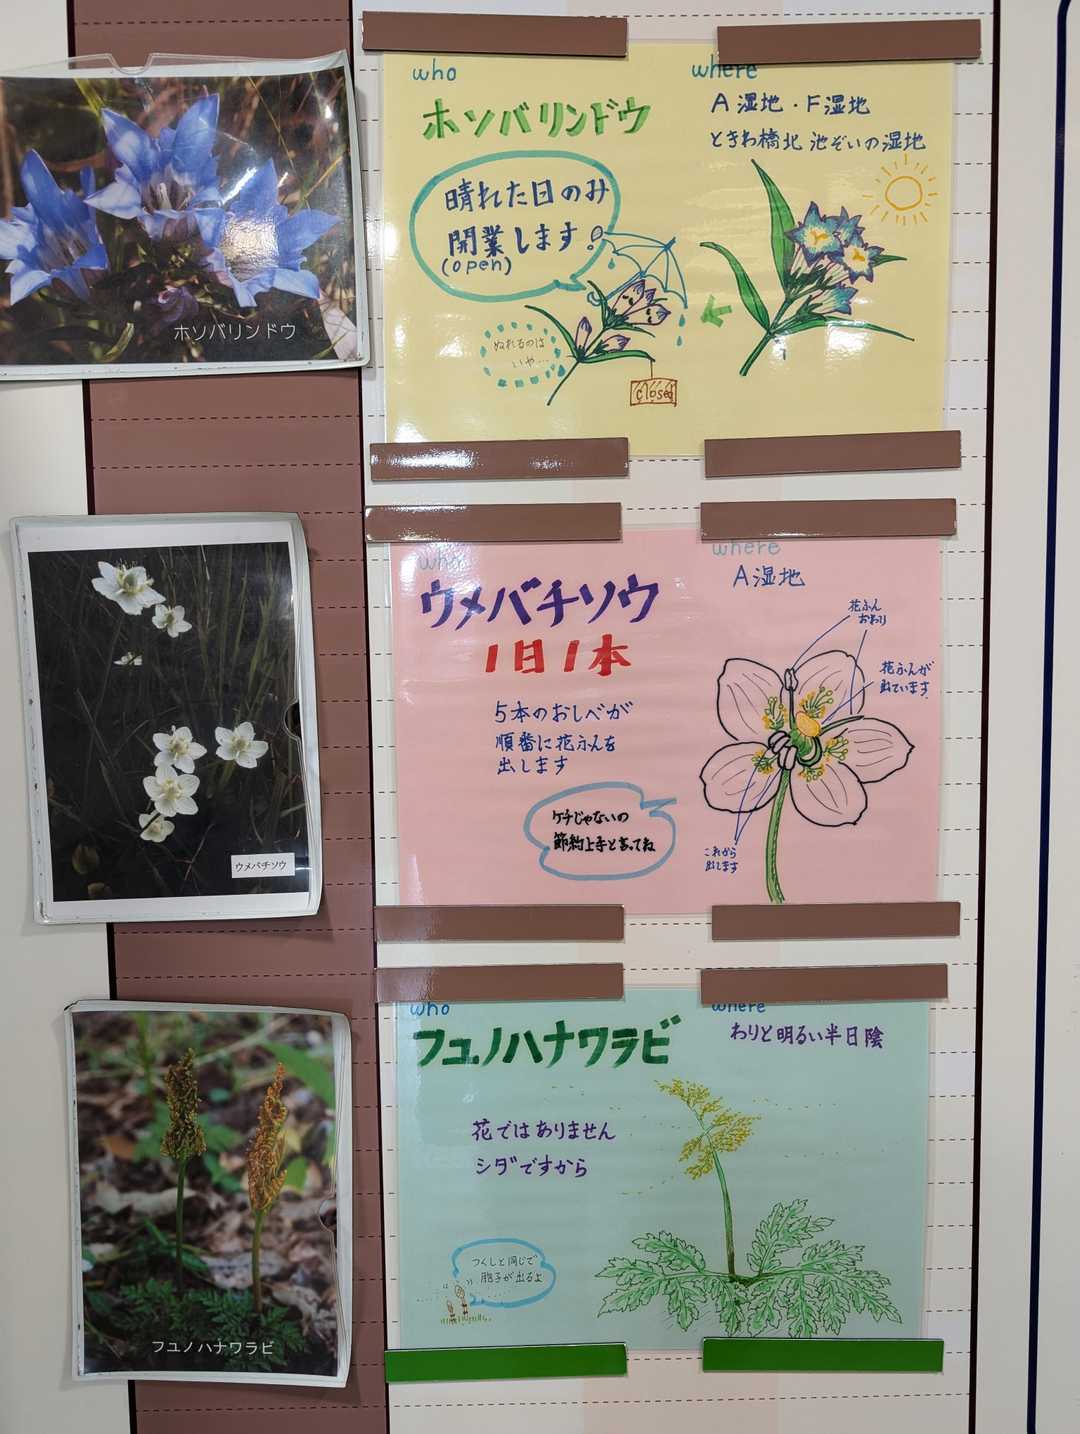 ホソバリンドウ
who
ホソバリンドウ
晴れた日のみ
開業します!
(open)
ぬれるのは
いや…
closed
where
A湿地・F湿地
ときわ橋北 池ぞいの湿地
ウメバチソウ
who
ウメバチソウ
1日1本
5本のおしべが
順番に花ふんを
出します
ケチじゃないの
節約上手と言ってね
where
A湿地
花ふん
おわり
花ふんが
出ています
これから
出てます
フユノハナワラビ
who
フユノハナワラビ
花ではありません
シダですから
つくしと同じで
胞子が出るよ
where
わりと明るい半日陰